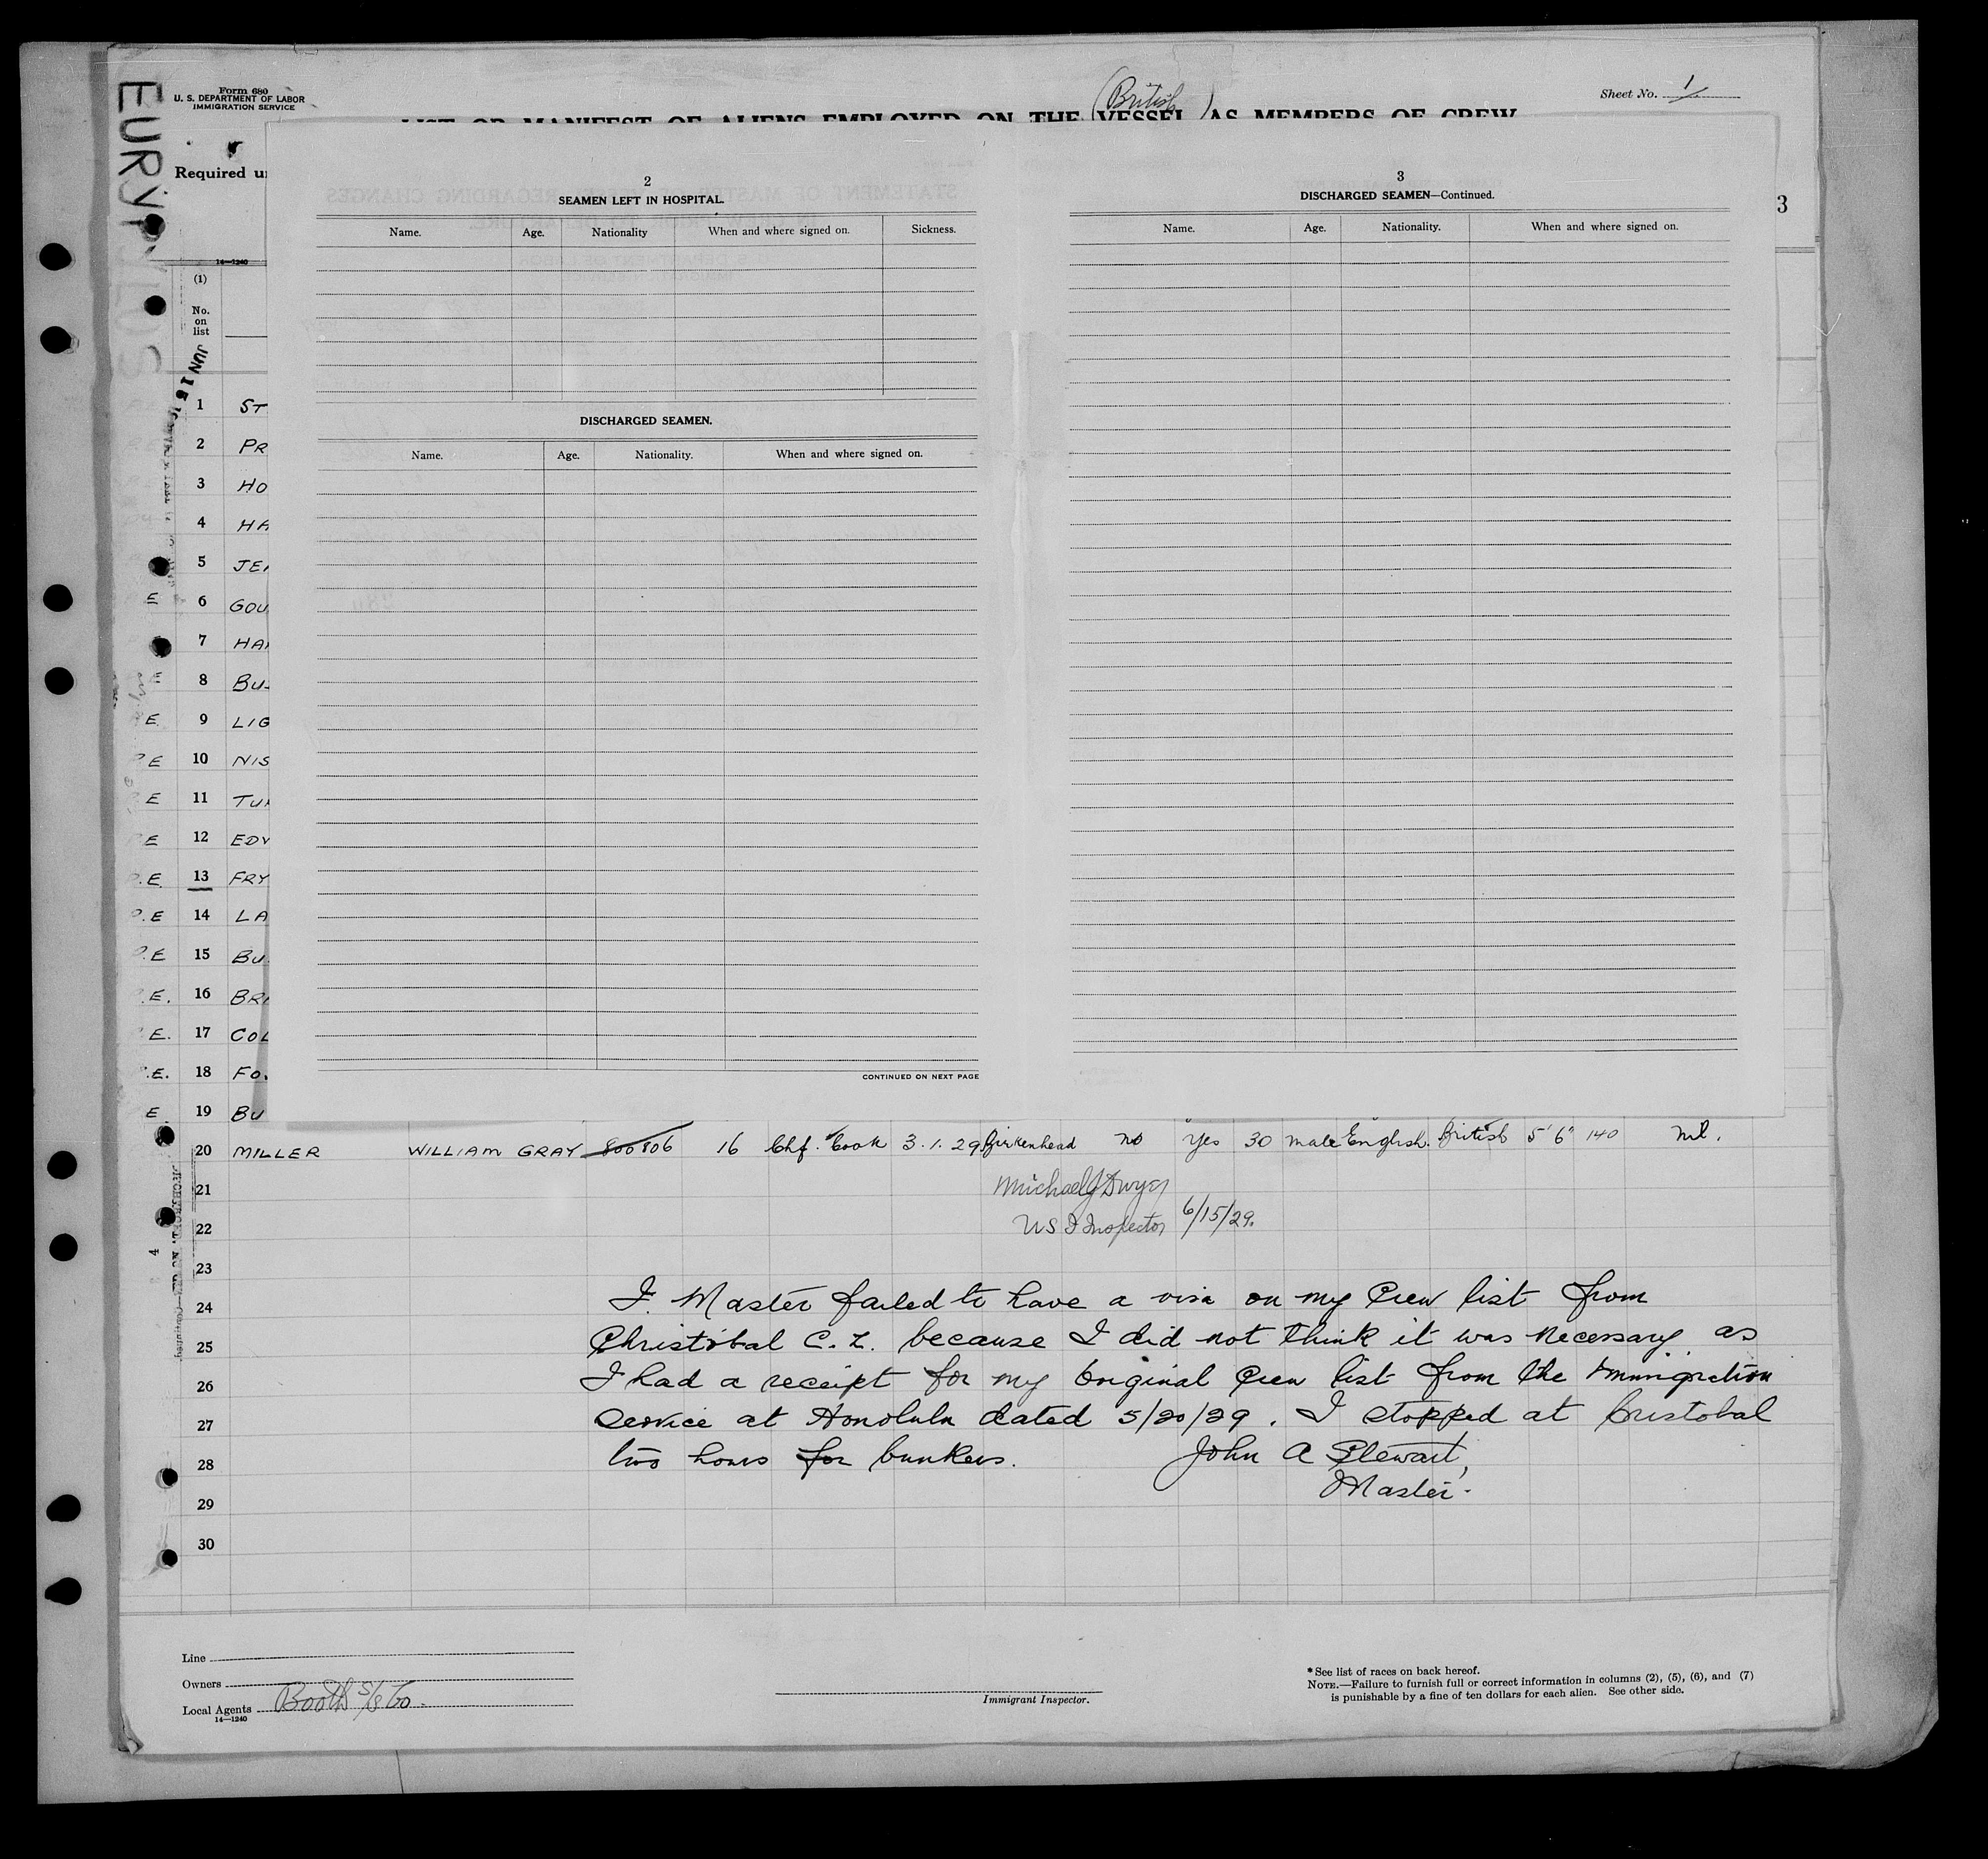 Form 680
U. S. DEPARTMENT OF LABOR
IMMIGRATION SERVICE
(British)
Sheet No. 1
LIST OR MANIFEST OF ALIENS EMPLOYED ON THE VESSEL AS MEMBERS OF CREW
Required u
3
14—1240
(1)
No.
on
list
2
SEAMEN LEFT IN HOSPITAL.
Name. Age. Nationality When and where signed on. Sickness.
DISCHARGED SEAMEN.
Name. Age. Nationality. When and where signed on.
CONTINUED ON NEXT PAGE
3
DISCHARGED SEAMEN—Continued.
Name. Age. Nationality. When and where signed on.
JUN 15
1 ST
2 PR
3 HO
4 HA
5 JE
E 6 GOU
7 HA
E 8 BU
E 9 LIG
E 10 NIS
E 11 TU
E 12 EDW
E 13 FRY
.E 14 LA
.E 15 BU
.E. 16 BR
E. 17 COL
.E. 18 FO
E 19 BU
20 MILLER WILLIAM GRAY 800806 16 Chf. Cook 3.1.29 Birkenhead no Yes 30 male English. British 5' 6" 140 nil.
21 Michael J Dwyer
22 US I Inspector 6/15/29.
23
24 I. Master failed to have a visa on my Crew list from
25 Christobal C. Z. because I did not think it was necessary as
26 I had a receipt for my Original Crew list from the Immigration
27 Service at Honolulu dated 5/20/29. I stopped at Cristobal
28 two hours for bunkers. John A Stewart,
29 Master.
30
Line
Owners
Local Agents Booth S/S Co.
14—1240
Immigrant Inspector.
* See list of races on back hereof.
NOTE.—Failure to furnish full or correct information in columns (2), (5), (6), and (7)
is punishable by a fine of ten dollars for each alien. See other side.